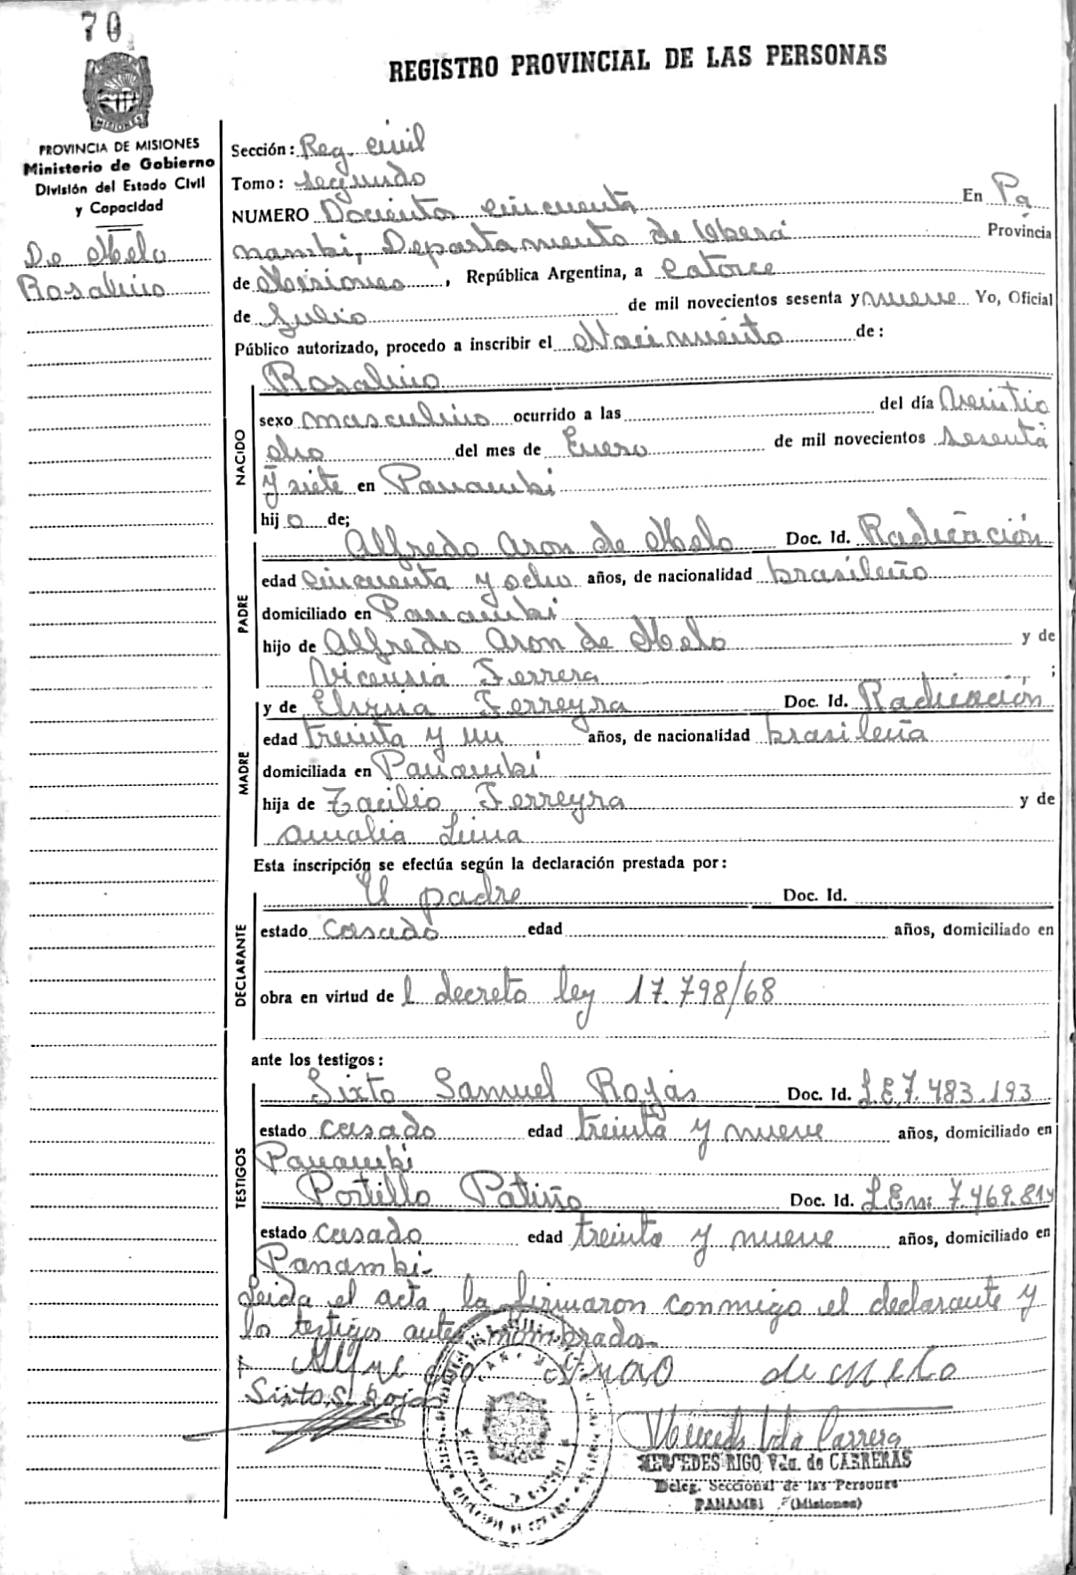 70
REGISTRO PROVINCIAL DE LAS PERSONAS
PROVINCIA DE MISIONES
Ministerio de Gobierno
División del Estado Civil
y Capacidad
De Melo
Rosalino
Sección: Reg. civil
Tomo: segundo
NUMERO Docientos cincuenta En Pa
nambi, Departamento de Oberá Provincia
de Misiones, República Argentina, a Catorce
de Julio de mil novecientos sesenta y nueve Yo, Oficial
Público autorizado, procedo a inscribir el Nacimiento de:
NACIDO
Rosalino
sexo masculino ocurrido a las del día Veintio
cho del mes de Enero de mil novecientos sesenta
y siete en Panambi
hijo de;
PADRE
Alfredo Aron de Melo Doc. Id. Radicación
edad cincuenta y ocho años, de nacionalidad brasileño
domiciliado en Panambi
hijo de Alfredo Aron de Melo y de
Vicensia Ferrera ;
MADRE
y de Elvina Ferreyra Doc. Id. Radicación
edad treinta y un años, de nacionalidad brasileña
domiciliada en Panambi
hija de Tacilio Ferreyra y de
Amalia Lima
Esta inscripción se efectúa según la declaración prestada por:
DECLARANTE
El padre Doc. Id.
estado Casado edad años, domiciliado en
obra en virtud de l decreto ley 17.798/68
ante los testigos:
TESTIGOS
Sixto Samuel Rojas Doc. Id. L.E. 7.483.193
estado casado edad treinta y nueve años, domiciliado en
Panambi
Portillo Patiño Doc. Id. L.E. 7.469.814
estado casado edad treinta y nueve años, domiciliado en
Panambi-
Leida el acta la firmaron conmigo el declarante y
los testigos antes nombrados-
de melo
Sixto S. Rojas
MERCEDES RIGO Vda. de CABRERAS
Deleg. Seccional de las Personas
PANAMBI (Misiones)